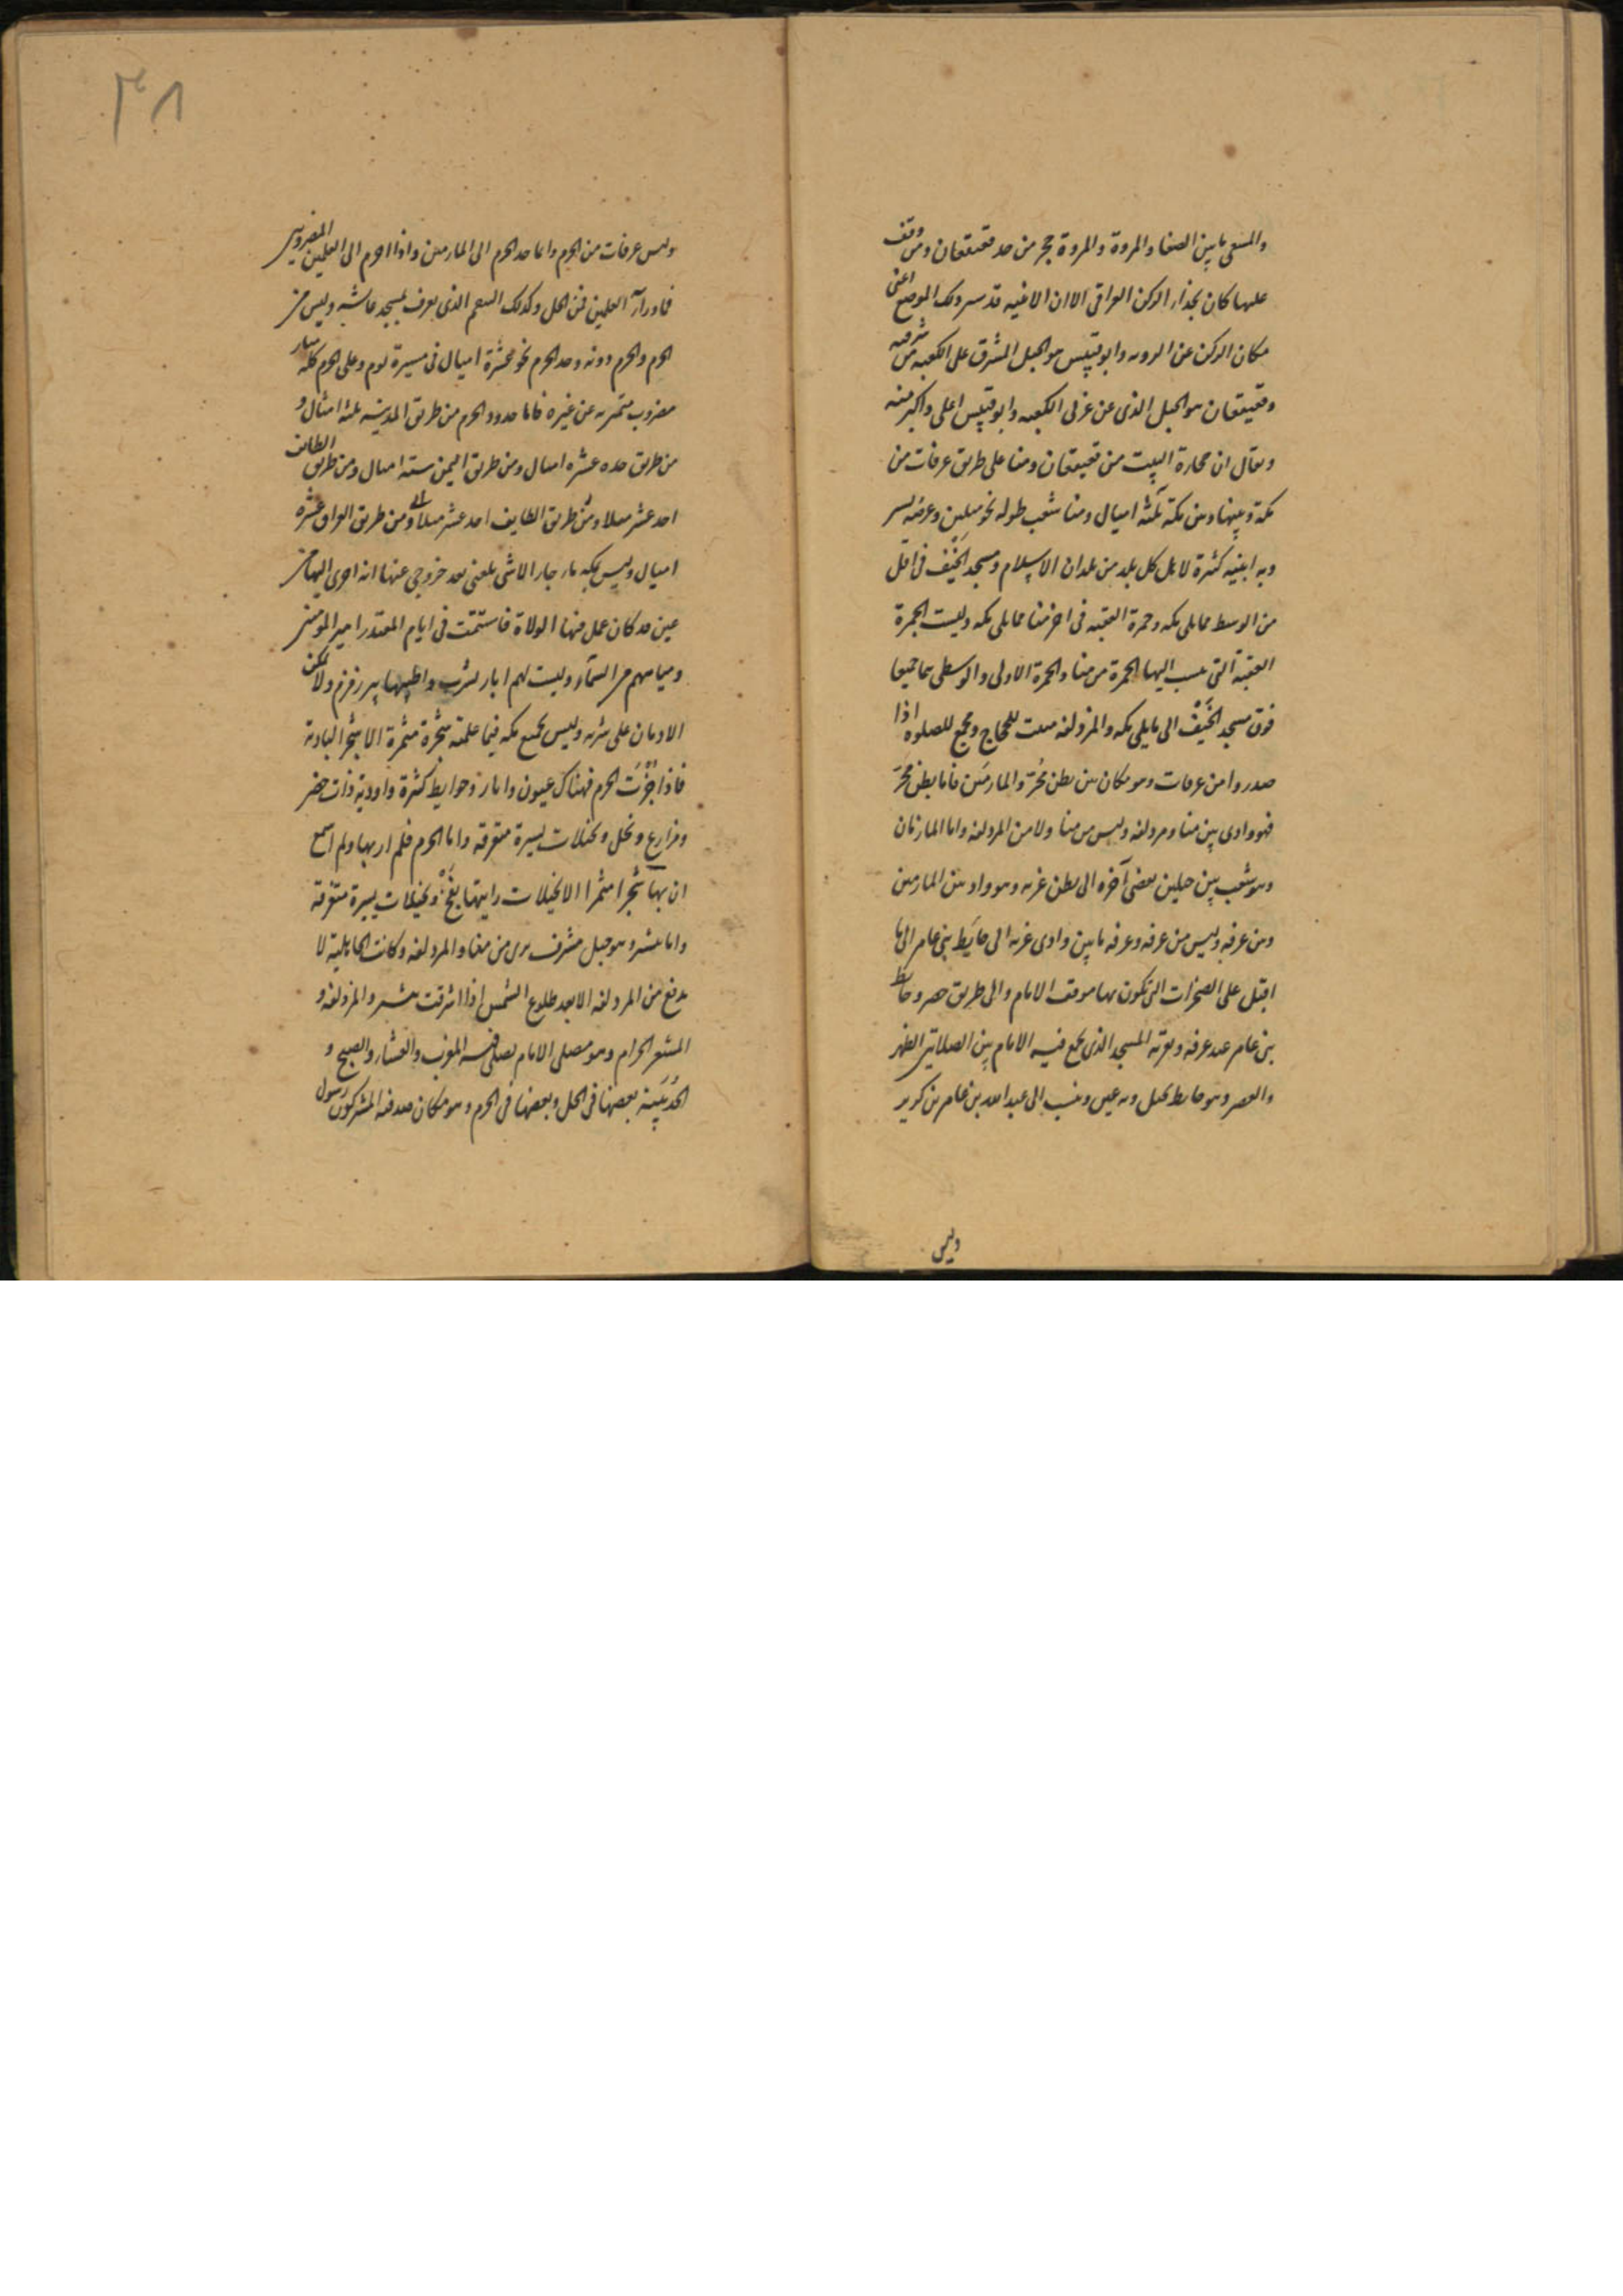 والمسعى ما بين الصفا والمروة والمروة حجر من حد قعيقعان ومن وقف
عليها كان بحذاء الركن العراقى الا ان الابنيه قد سترت ذلك الموضع اعنى
مكان الركن عن الرويه وابو قبيس هو الجبل المشرف على الكعبه من شرقيه
وقعيقعان هو الجبل الذى عن غربى الكعبه وابو قبيس اعلى واكبر منه
ويقال ان حجارة البيت من قعيقعان ومنا على طريق عرفات من
مكة وبينها وبين مكة ثلثه اميال ومنا شعب طوله نحو ميلين وعرضه يسير
وبه ابنيه كثيرة لاهل كل بلد من بلدان الاسلام ومسجد الخيف فى اقل
من الوسط مما يلى مكه وجمرة العقبه فى اخر منا مما يلى مكه وليست الجمرة
العقبة التى ينسب اليها الجمرة من منا والجمرة الاولى والوسطى هما جميعا
فوق مسجد الخيف الى ما يلى مكه والمزدلفه مبيت للحجاج ومجمع للصلوه اذا
صدروا من عرفات وهو مكان بين بطن محسر والمازمين فاما بطن محسر
فهو وادى بين منا ومزدلفه وليس من منا ولا من المزدلفه واما المازمان
وهو شعب بين جبلين يفضى آخره الى بطن عرنه وهو واد بين المازمين
وبين عرفه وليس من عرفه وعرفه ما بين وادى عرنه الى حايط بنى عامر الى ما
اقبل على الصخرات التى تكون بها موقف الامام والى طريق حصن وحايط
بنى عامر عند عرفه وبقربه المسجد الذى يجمع فيه الامام بين الصلاتين الظهر
والعصر وهو حايط نخيل وبه عين وينسب الى عبد الله بن عامر بن كريز
وليس
٣٨
وليس عرفات من الحرم وانما حد الحرم الى المازمين واذا الحرم الى العلمين المضروبين
فما ورآء العلمين فمن الحل وكذلك التنعيم الذى يعرف بمسجد عايشه وليس من
الحرم والحرم دونه وحد الحرم نحو عشرة اميال فى مسيرة يوم وعلى الحرم كله منار
مضروب متميز به عن غيره فاما حدود الحرم من طريق المدينه ثلثه اميال و
من طريق جده عشره اميال ومن طريق اليمن سته اميال ومن طريق الطايف
احد عشر ميلا ومن طريق الطايف احد عشر ميلا ومن طريق العراق عشره
اميال وليس بمكه ماء جار الا شى بلغنى بعد خروجى عنها انه اجرى اليها من
عين قد كان عمل فيها الولاة فاستتمت فى ايام المقتدر امير المومنين
ومياههم من السمآء وليست لهم ابار تشرب واطيبها بير زمزم ولا يمكن
الادمان على شربه وليس بجميع مكه فيما علمته شجرة مثمرة الا شجر البادية
فاذا جزت الحرم فهناك عيون وابار وحوايط كثيرة واودية ذات خضر
ومزارع ونخل ونخيلات يسيرة متفرقه واما الحرم فلم ار بها ولم اسمع
ان بها شجرا مثمرا الا نخيلات رايتها بفخ ونخيلات يسيرة متفرقة
واما ثبير وهو جبل مشرف يرى من منا والمزدلفه وكانت الجاهلية لا
يدفع من المزدلفه الا بعد طلوع الشمس اذا اشرقت ثبير والمزدلفه و
المشعر الحرام وهو مصلى الامام يصلى فيه المغرب والعشاء والصبح و
الحديبية بعضها فى الحل وبعضها فى الحرم وهو مكان صد فيه المشركون رسول